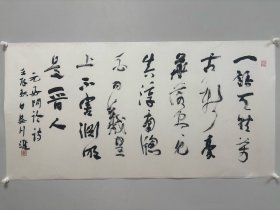 一語天然萬
古新豪
華落盡見
真淳南窗
白日羲皇
上未害淵明
是晉人
元好问論詩
壬辰秋日